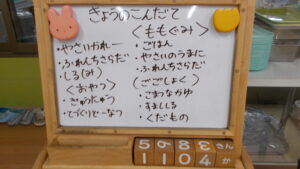 きょうのこんだて
・やさいかれー
・ふれんちさらだ
・しる(み)
〈おやつ〉
・ぎゅうにゅう
・てづくりどーなつ
〈ももぐみ〉
・ごはん
・やさいのうまに
・ふれんちさらだ
(ごごしょく)
・こまつながゆ
・すましじる
・くだもの
さん
1104か